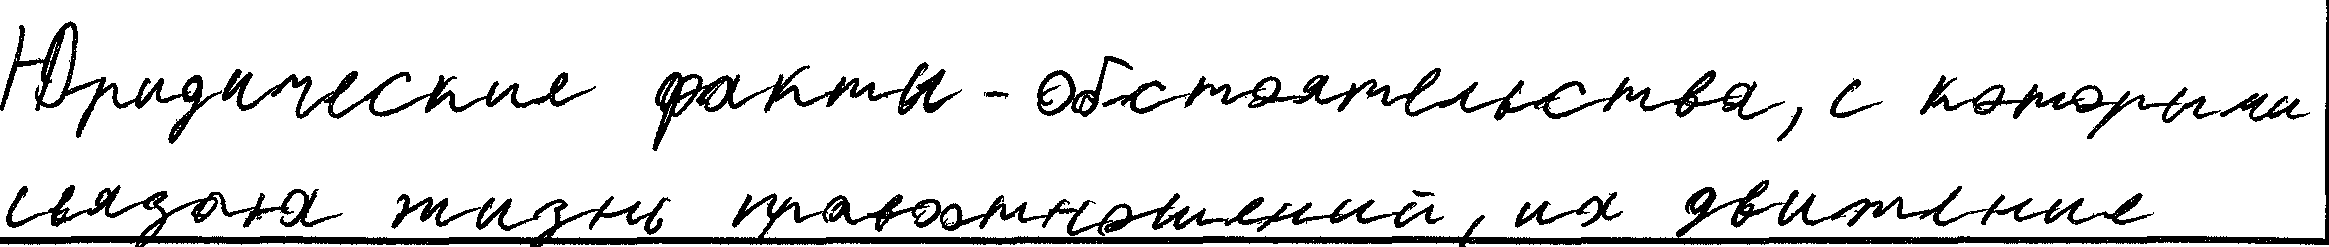 Юридические факты - обстоятельства, с которыми
связана жизнь правоотношений, их движение